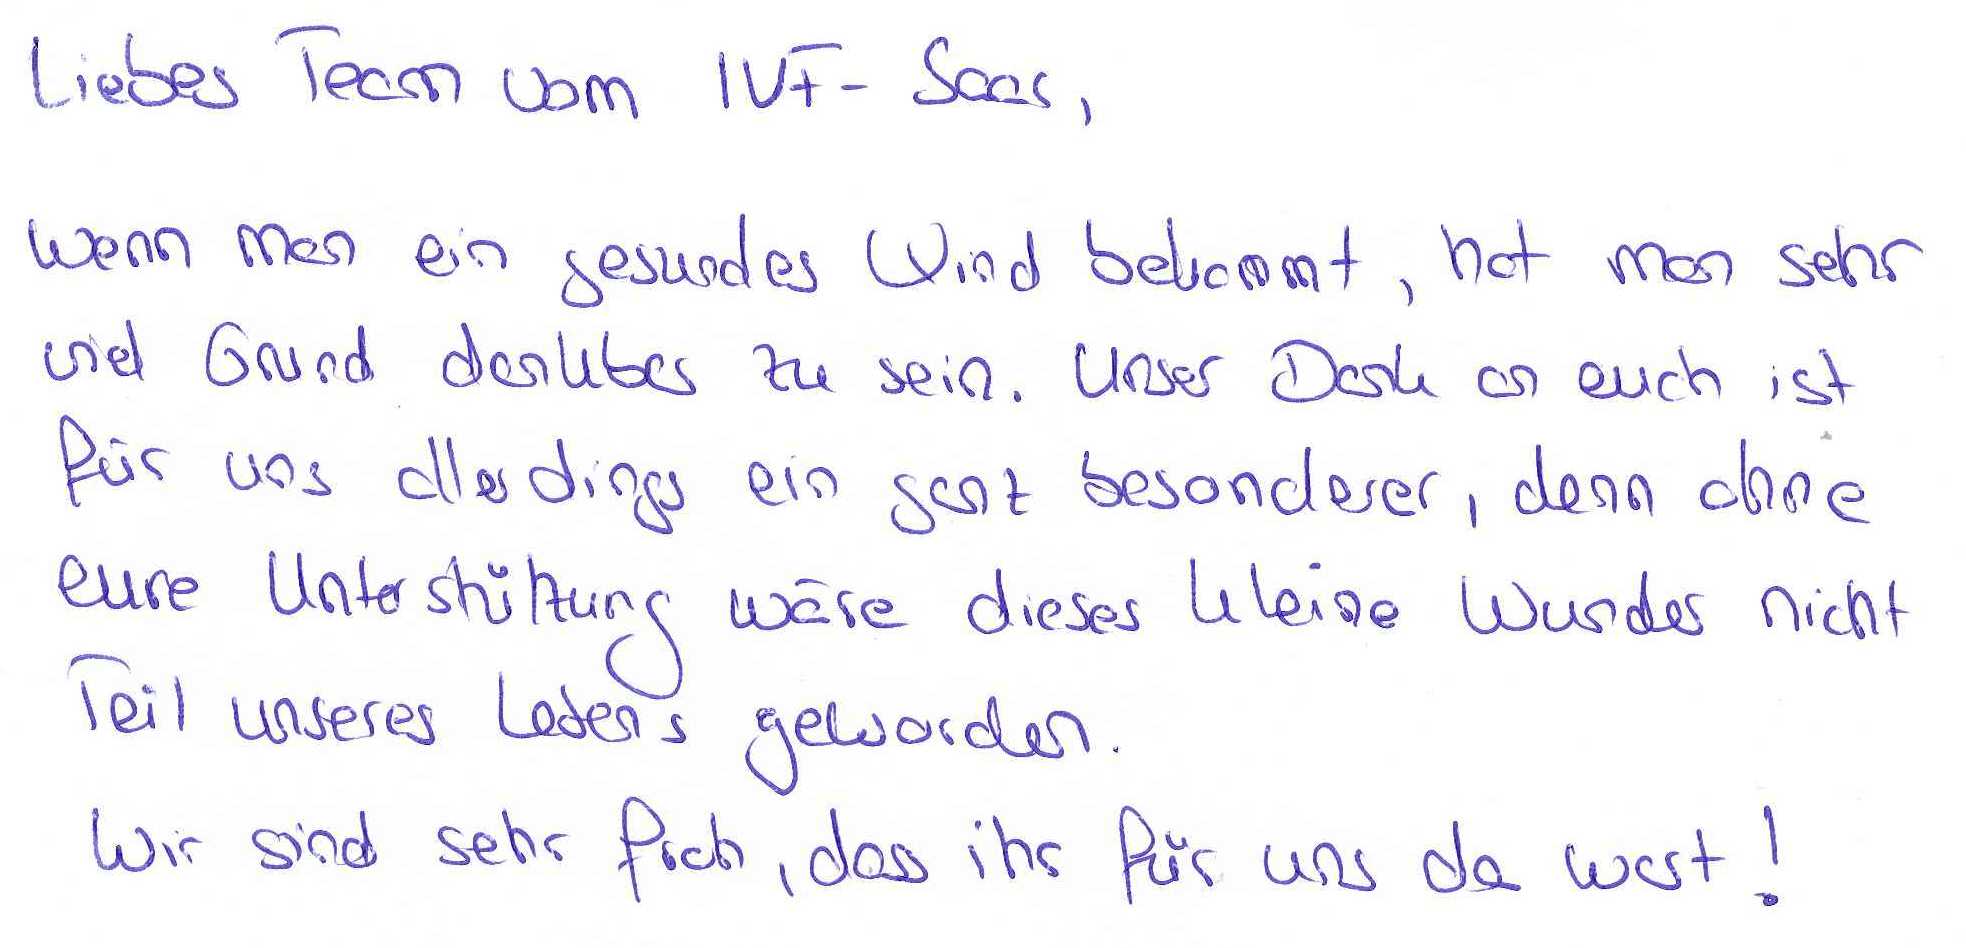 Liebes Team vom IVF-Saar,
wenn man ein gesundes Kind bekommt, hat man sehr
viel Grund dankbar zu sein. Unser Dank an euch ist
für uns allerdings ein ganz besonderer, denn ohne
eure Unterstützung wäre dieses kleine Wunder nicht
Teil unseres Lebens geworden.
Wir sind sehr froh, dass ihr für uns da wart!